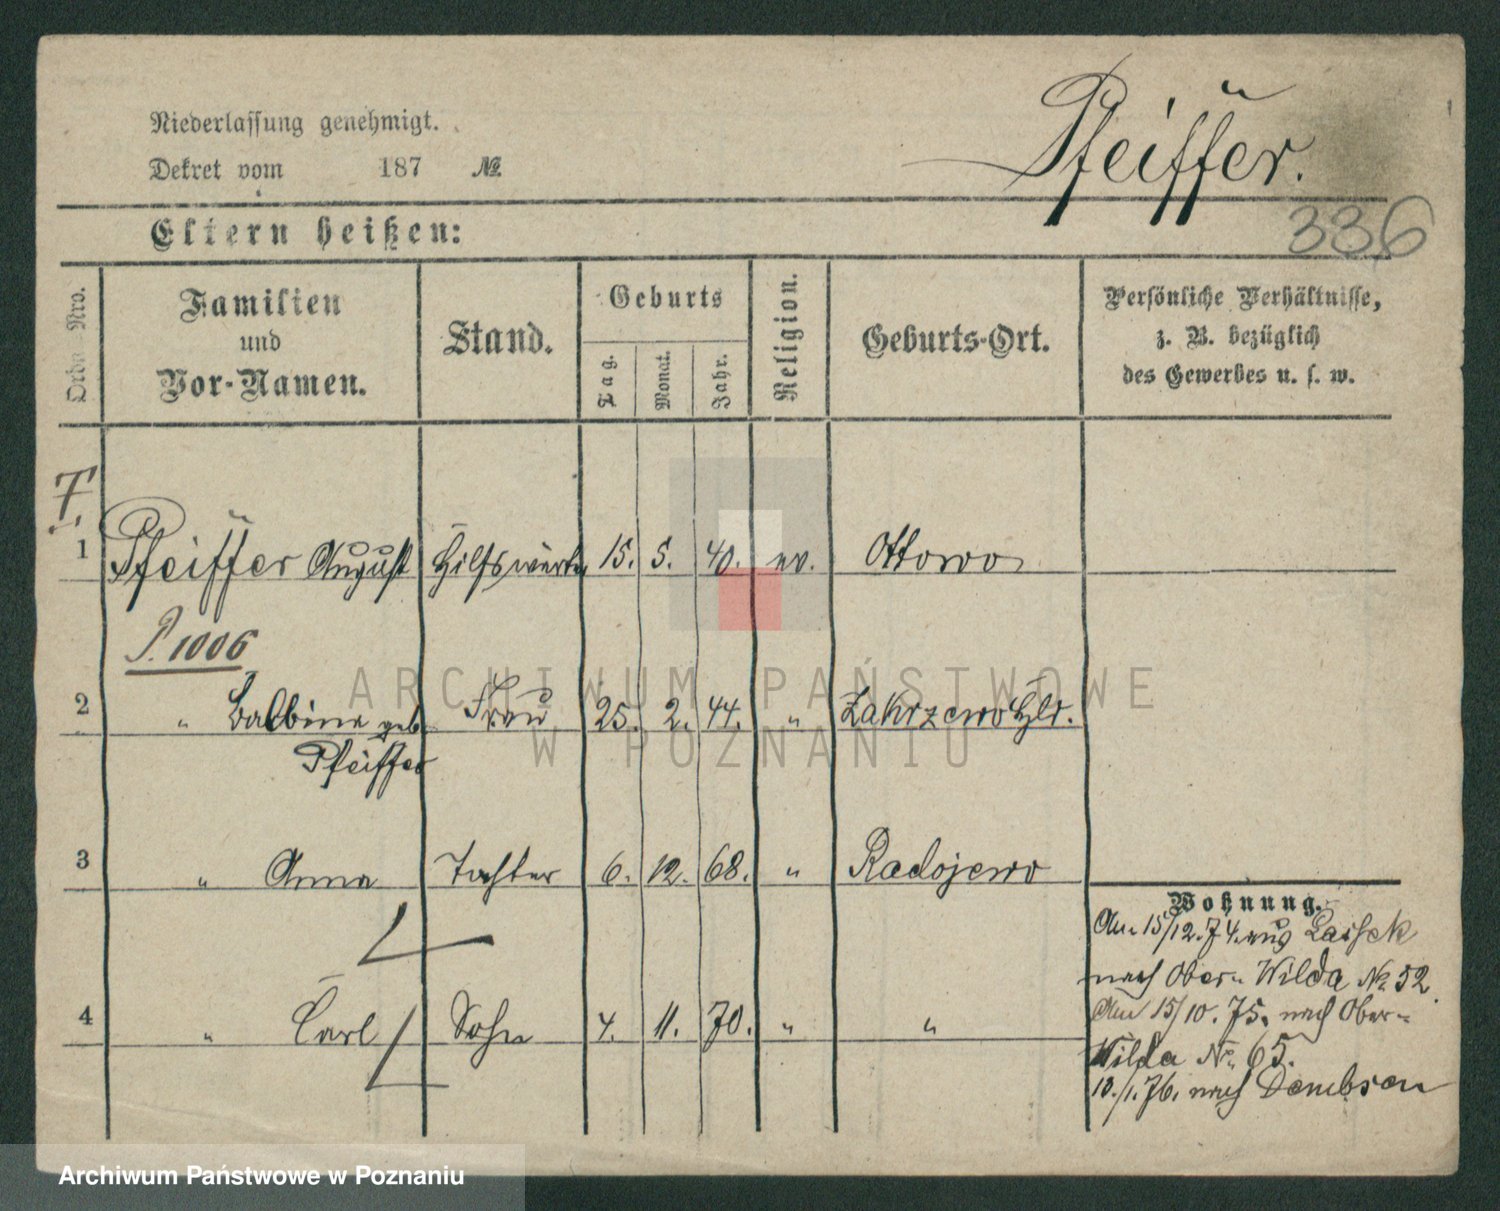 Niederlassung genehmigt.
Dekret vom 187 №
Pfeiffer.
336
Eltern heißen:
Ordn.-Nro.
Familien
und
Vor-Namen.
Stand.
Geburts
Tag.
Monat.
Jahr.
Religion.
Geburts-Ort.
Persönliche Verhältnisse,
z. B. bezüglich
des Gewerbes u. s. w.
1 Pfeiffer August Hilfswärter 15. 5. 40. ev. Ottowo
P. 1006
2 " Balbina geb. Frau 25. 2. 44. " Zakrzewo Hld.
Pfeiffer
3 " Anna Tochter 6. 12. 68. " Radojewo
4 " Carl Sohn 4. 11. 70. " "
Wohnung.
Am 15/12. 74. aus Lassek
nach Ober- Wilda № 52.
Am 15/10. 75. nach Ober-
Wilda No 65.
10./1. 76. nach Dembsen
ARCHIWUM PAŃSTWOWE
W POZNANIU
Archiwum Państwowe w Poznaniu